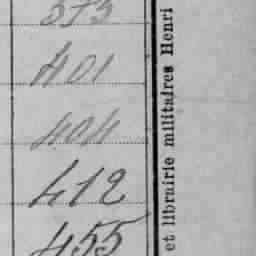 373
401
404
412
455
et librairie militaires Henri